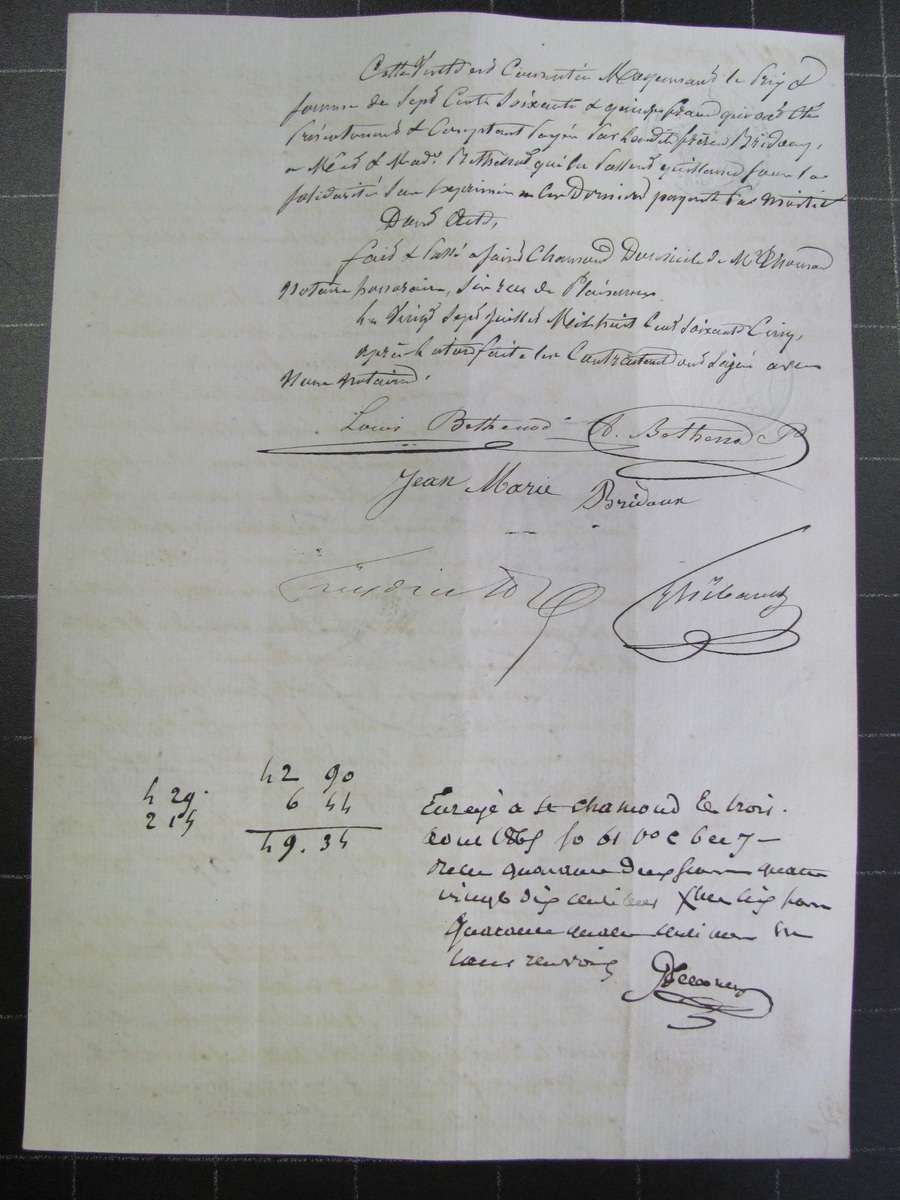 Cette Vente est Consentie Moyennant le prix &
somme de Sept Cents Soixante & quinze francs qui ont été
Présentement & Comptant payés par les dits frères Bridoux,
a Mr & Made Bethenod qui leur passent quittance sous la
solidarité
Dont Acte,
fait & passé a Saint Chamond Domicile de Mr
Notaire honoraire, Sis rue de Plaisance
Le Vingt Sept Juillet Mil huit Cent Soixante Cinq,
après lecture faite les Contractants ont Signé avec
Nous Notaire.
Louis Bethenod A. Bethenod
Jean Marie Bridoux
42 90
4 29
6 44
2 15
49. 34
Enregé a St Chamond le trois
aout 1865 fo 61 Vo C 6 et 7
recu quarante deux francs quatre
vingt dix centimes Xmes six francs
quarante quatre centimes
sans renvois